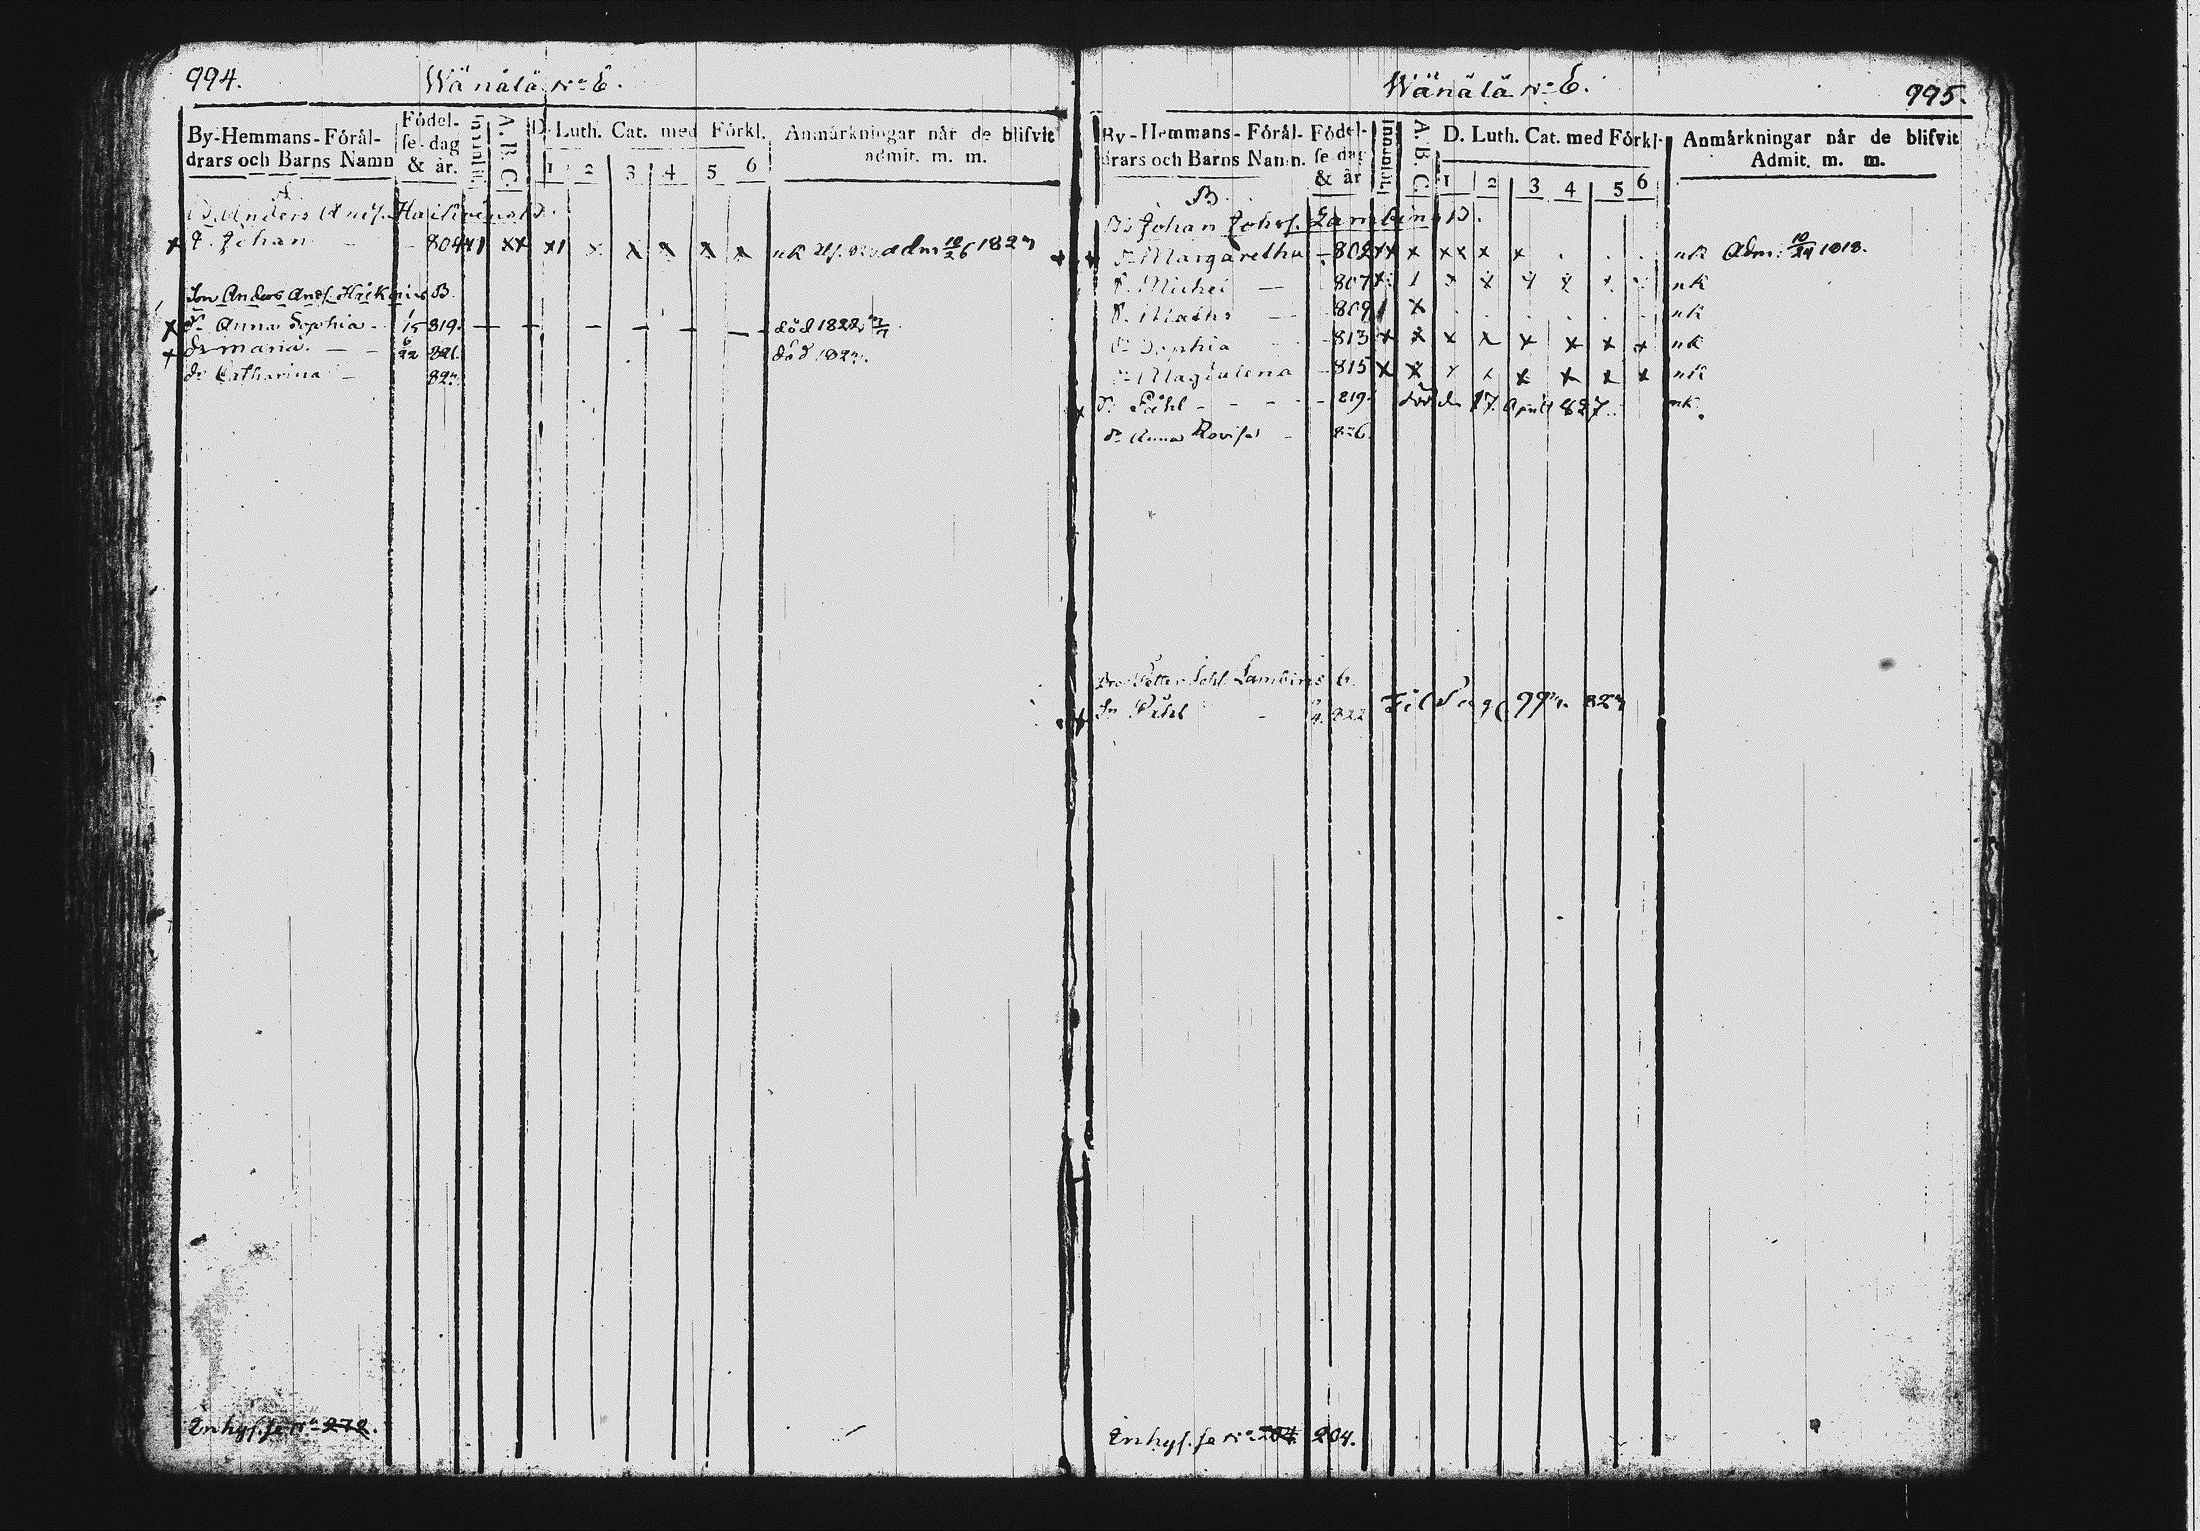 994.
Wänälä No 6.
By-Hemmans-Förål-
drars och Barns Namn
Födel-
se-dag
& år.
Innanlä.
A. B. C.
D. Luth. Cat. med Förkl.
1 2 3 4 5 6
Anmårkningar når de blifvit
admit. m. m.
A
B. Anders And. Haikoinens B.
S. Johan - - 804 xx1 xx x1 x x x x x nk adm 10/26 1827
Son Anders And. Häikoinens B.
dr Anna Sophia - 1/15 819. - - - - - - död 1822
dr Maria. - - 6/22 821. död 182
dr Catharina - 827.
Inhys. se No 272.
Wänälä No 6.
995.
By-Hemmans-Förål-
drars och Barns Namn.
Födel-
se dag
& år
Innanläl
A. B. C.
D. Luth. Cat. med Förkl.
1 2 3 4 5 6
Anmårkningar når de blifvit
Admit. m. m.
B.
B: Johan Johs. Lambins B.
dr Margaretha - 802 xx x xx x x . . . nk Adm: 10/24 1818.
S. Michel - 807 x 1 x x x x x x nk
S. Maths - - 809 1 x . . . . . . nk
dr Sophia - 813 x x x x x x x x nk
dr Magdalena - 815 x x x x x x x x nk
S. Påhl - - - - 819. död d. 17. April 827. nk.
dr Anna Lovisa - 826.
Bro. Petter Johs. Lambins b.
Sn Påhl - 822 Til pag 99 827
Inhys. se No 204. 204.